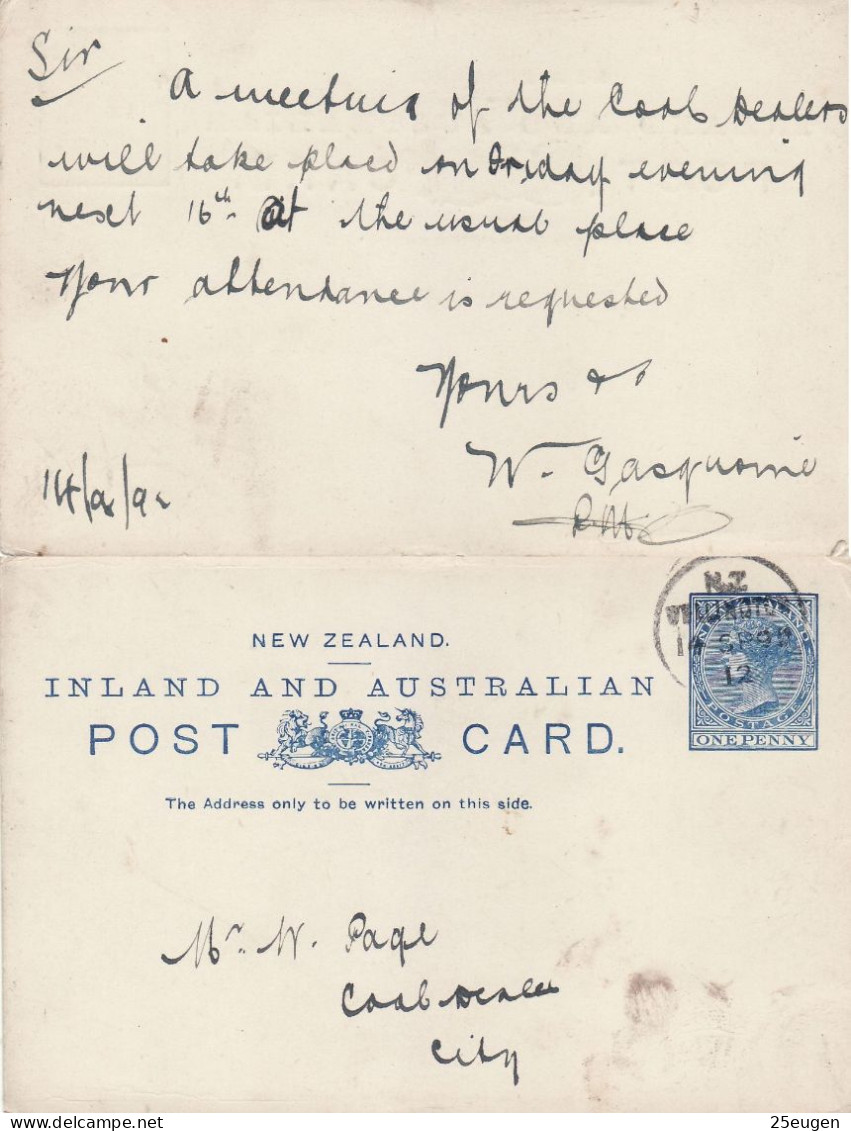 Sir
A meeting of the Coal Dealers
will take place on Friday evening
next 16th At the usual place
Your attendance is requested
Yours &c
W. Gasquoine
14/9/92
N.Z
WELLINGTON
14 SP 92
12
NEW ZEALAND.
INLAND AND AUSTRALIAN
POST CARD.
The Address only to be written on this side.
NEW ZEALAND
POSTAGE
ONE PENNY
Mr. W. Page
Coal Dealer
City
25eugen